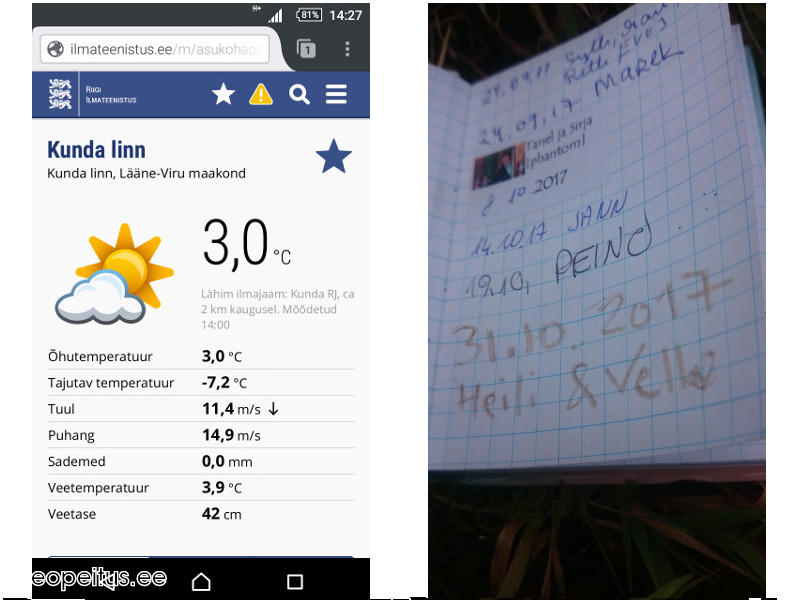 H+
81%
14:27
ilmateenistus.ee/m/asukohapo
1
RIIGI
ILMATEENISTUS
Kunda linn
Kunda linn, Lääne-Viru maakond
3,0 °C
Lähim ilmajaam: Kunda RJ, ca
2 km kaugusel. Mõõdetud
14:00
Õhutemperatuur 3,0 °C
Tajutav temperatuur -7,2 °C
Tuul 11,4 m/s ↓
Puhang 14,9 m/s
Sademed 0,0 mm
Veetemperatuur 3,9 °C
Veetase 42 cm
eopeitus.ee
24.09.17
24.09.17- Marek
Tanel ja Sirja
[phantom]
8 10.2017
14.10.17 JANN
19.10, REINO
31.10.2017
Heili & Vello